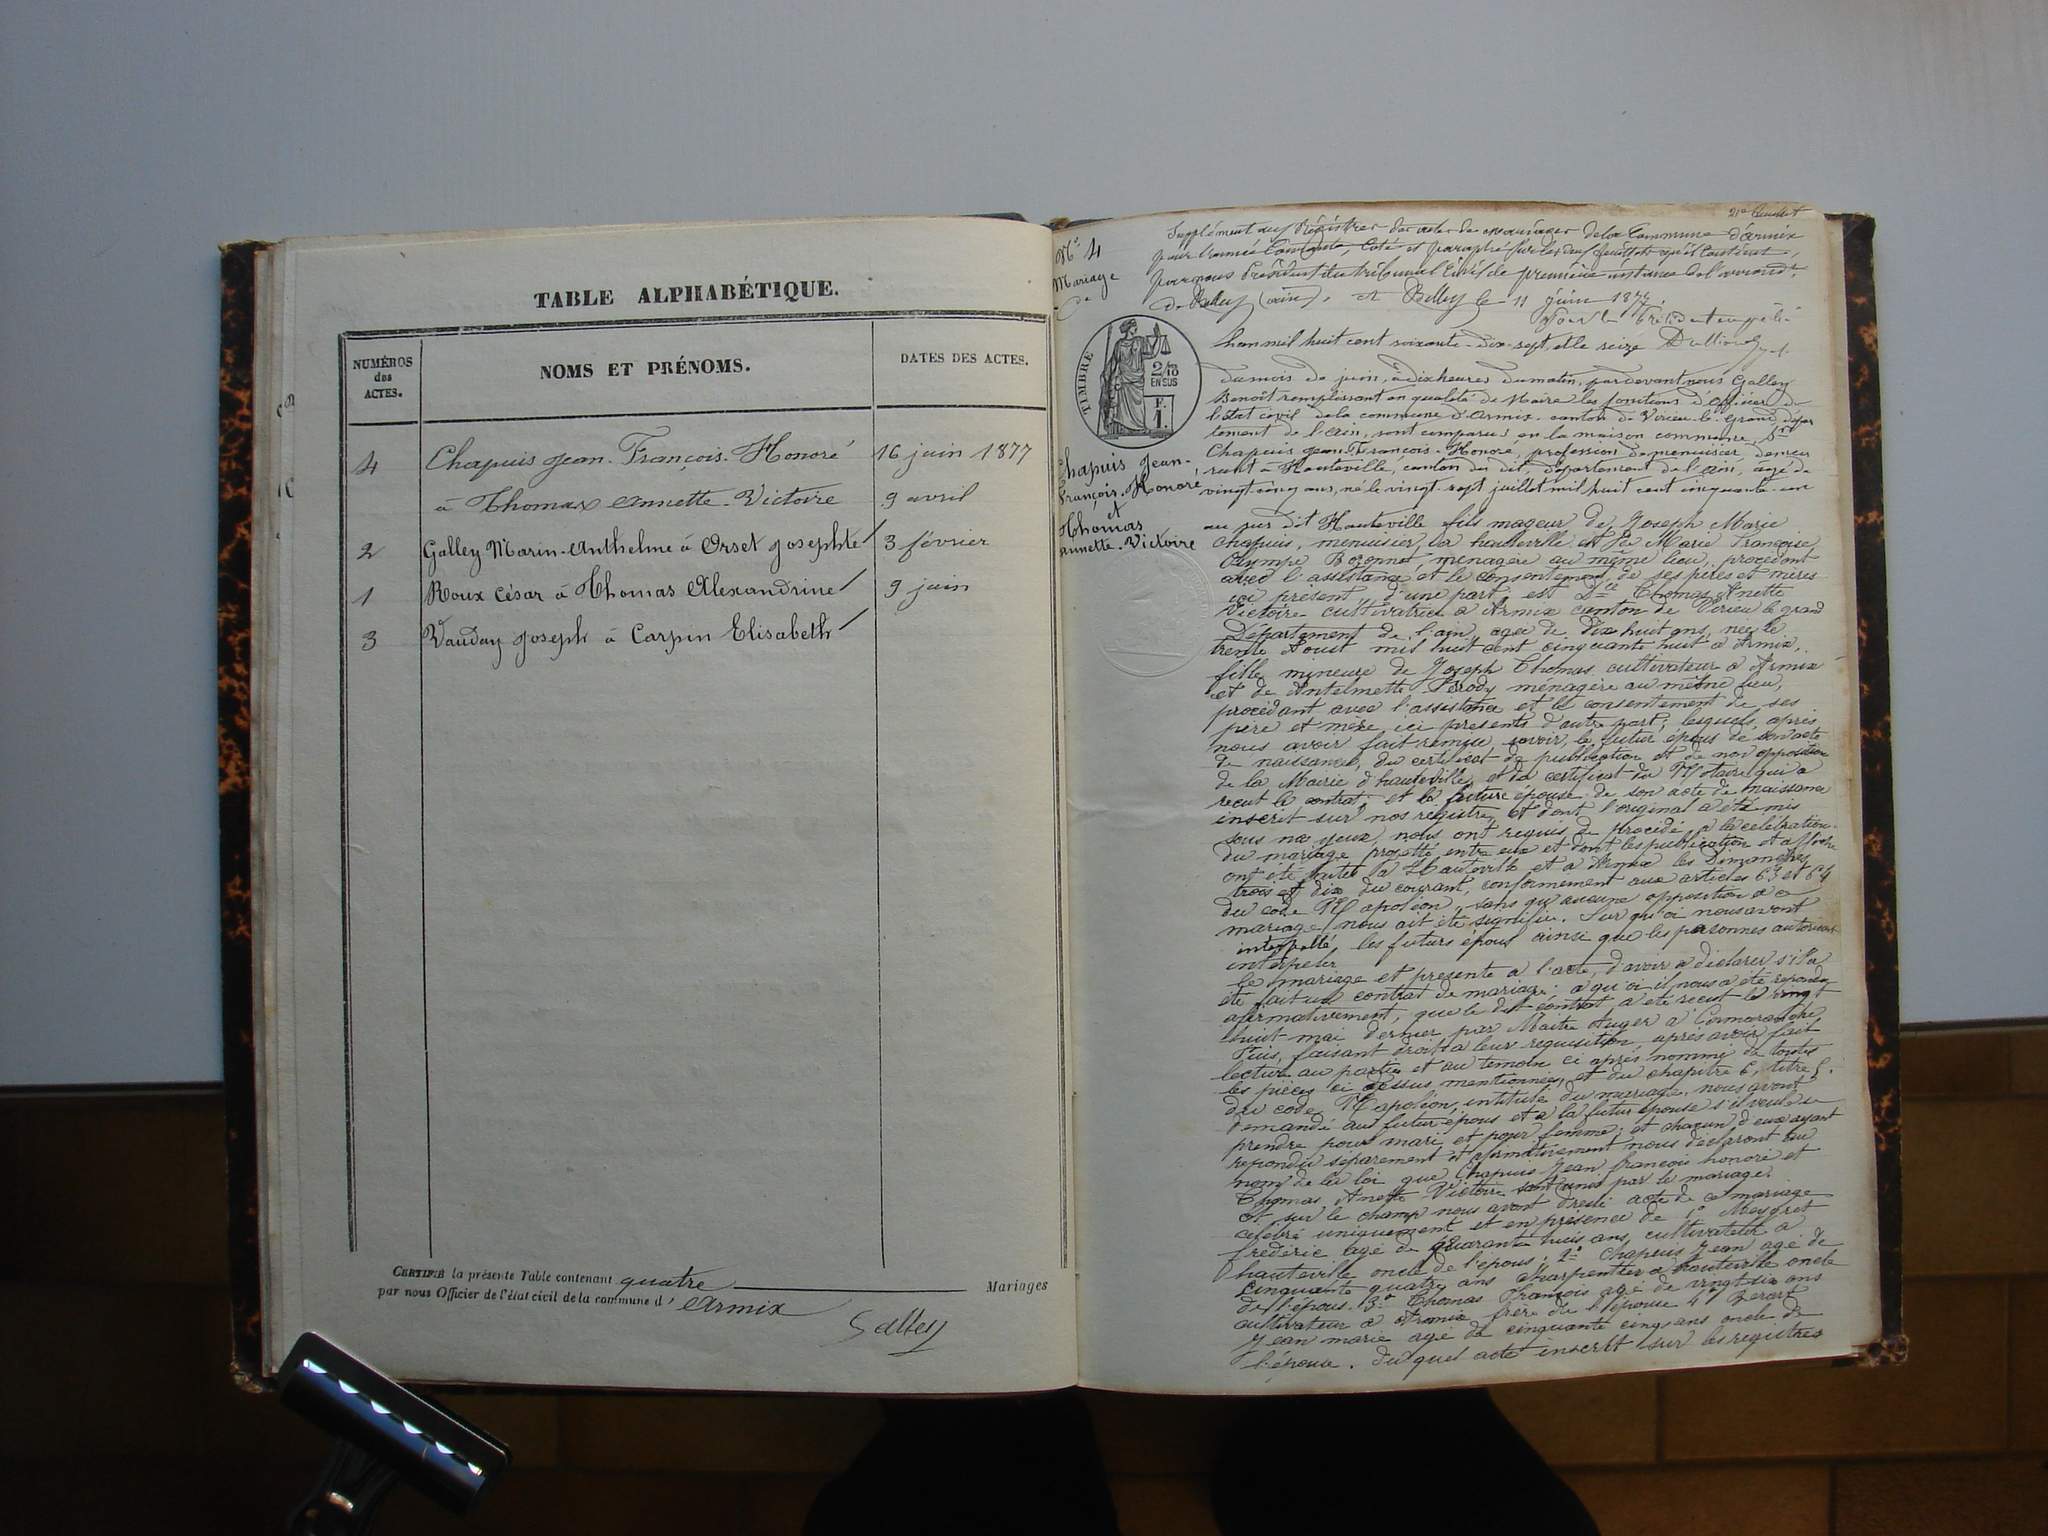 TABLE ALPHABÉTIQUE.
NUMÉROS
des
ACTES.
NOMS ET PRÉNOMS.
DATES DES ACTES.
4 Chapuis Jean-François-Honoré 16 juin 1877
à Thomas Annette-Victoire 9 avril
2 Galley Marin-Anthelme à Orset Josephte 3 février
1 Roux César à Thomas Alexandrine 9 juin
3 Vauday Joseph à Carpin Elisabeth
CERTIFIÉ la présente Table contenant quatre Mariages
par nous Officier de l'état civil de la commune d' Armix
Galley
N° 4
Mariage
Supplément aux Régistres des actes de mariages de la Commune d'armix
pour l'année Courante, Coté et paraphé sur les deux feuillets qu'il Contient,
par nous Président du tribunal Civil de première instance de l'arrondt
De Belley (ain), Belley le 11 juin 1877.
TIMBRE
2/10
EN SUS
F.
1.
Chapuis Jean-
François-Honoré,
et
Thomas
Annette-Victoire
L'an mil huit cent soixante-dix-sept, et le seize
du mois de juin, à dix heures du matin, par devant nous Galley
Benoît remplissant en qualité de Maire les fonctions d'officier de
l'état civil de la commune d'Armix, canton de Virieu-le-Grand, dépar
tement de l'ain, sont comparus en la maison commune,
Chapuis Jean-François-Honoré, profession de menuisier, demeu
rant à Hauteville, canton du dit, département de l'ain, agé de
vingt-cinq ans, né le vingt-sept juillet mil huit cent cinquante-un
au Hauteville fils mageur de Joseph Marie
chapuis, menuisier, à hauteville et de Marie Françoise
Olympe ménagère au même lieu, procédant
avec l'assistance et le consentement de ses pères et mères
ici présent d'une part, est Dlle Thomas Anette
Victoire cultivatrice à Armix canton de Virieu le grand
Département de l'ain, agée de dix huit ans, née le
trente Aoust mil huit cent cinquante huit à Armix,
fille mineure de Joseph Thomas cultivateur à Armix
et de Antelmette ménagère au même lieu,
procédant avec l'assistance et le consentement de ses
père et mère ici présents d'autre part; lesquels, après
nous avoir fait remise, savoir, le futur époux de son acte
de naissance, du certificat de publication et de non opposition
de la Mairie d'hauteville et du certificat du Notaire qui a
recut le contrat; et la future épouse de son acte de naissance
inscrit sur nos registre et dont l'original a été mis
sous nos yeux, nous ont requis de procédé à la célébration
du mariage projetté entre eux et dont les publication et affiche
ont été faites à Hauteville et à Armix les Dimanches
trois et dix du courant, conformement aux articles 63 et 64
du code Napoléon, sans qu'aucune opposition a ce
mariage nous ait été signifié. Sur quoi nous avont
interpellé les futurs époux ainsi que les personnes autorisant
interpeler
le mariage et présente a l'acte, d'avoir a déclarer s'il a
été fait un contrat de mariage; a quoi il nous a été répondu
afirmativement, que le dit contrat a été recut le vingt
huit mai dernier par Maitre Auger à Cormaranche,
Puis, faisant droit a leur requisition, après avoir fait
lecture au partie et au temoin ci après nommé de toutes
les pièces ci dessus mentionnées, et du chapitre 6, titre 5.
du code Napoléon, intitulé du mariage, nous avont
demandé aux futur époux et a la futur épouse s'il veule se
prendre pour mari et pour femme; et chacun d'eux ayant
repondu séparement et afirmativement nous déclaront au
nom de la loi que Chapuis Jean françois honoré et
Thomas Anette Victoire sont unis par le mariage.
et sur le champ nous avont dressé acte de ce mariage
célébré uniquement et en présence de 1° Meygret
frédéric agé de quarante huit ans, cultivateur à
hauteville oncle de l'époux; 2° Chapuis Jean agé de
cinquante quatre ans charpentier à hauteville oncle
de l'époux. 3° Thomas François agé de vingt six ans
cultivateur à Armix frère de l'épouse 4°
Jean marie agé de cinquante cinq ans oncle de
l'épouse. Du quel acte inscrit sur les registres